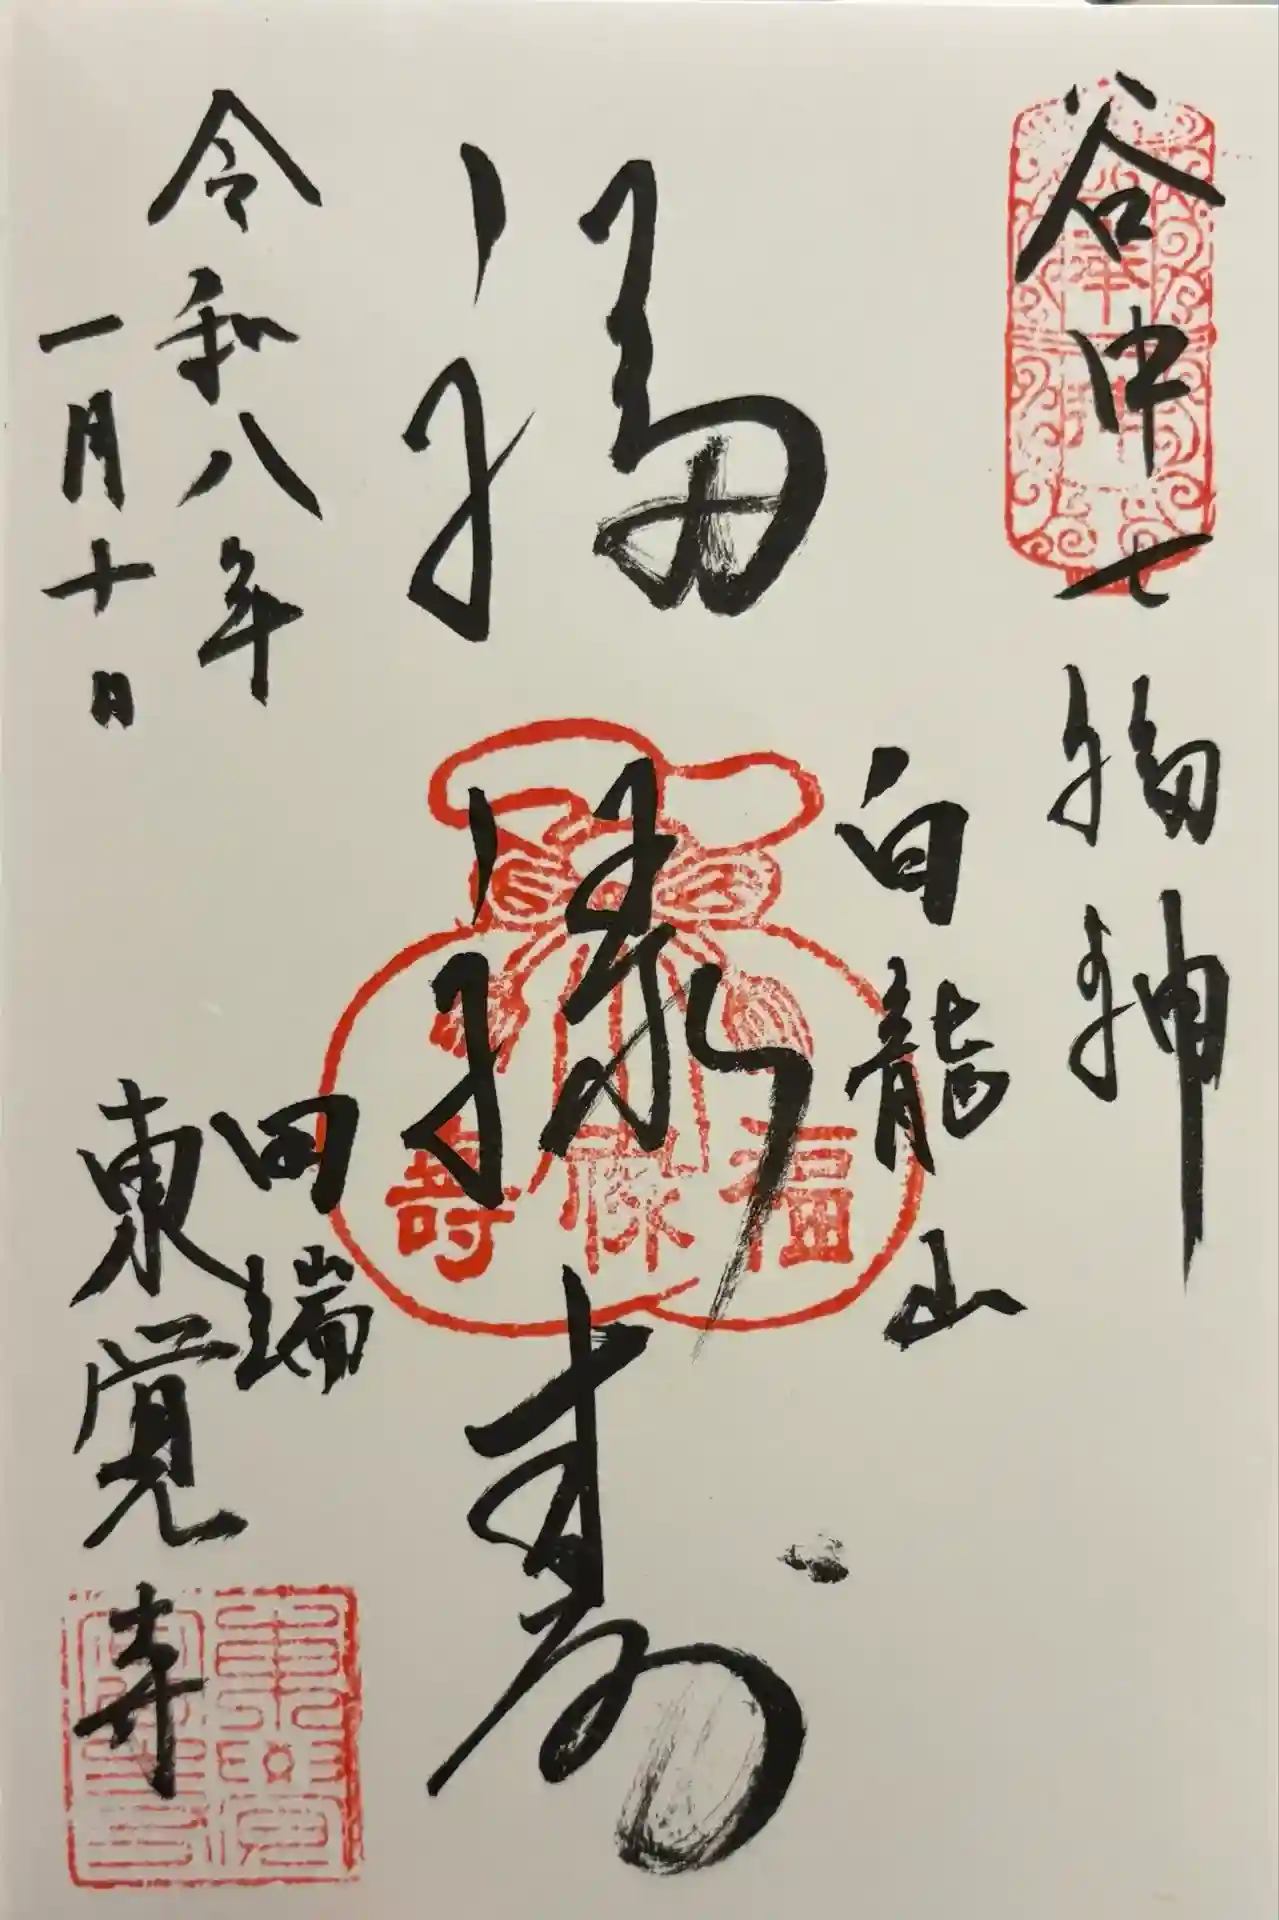 谷中七福神
白龍山
福禄寿
福
禄
壽
令和八年
一月十日
田端
東覚寺